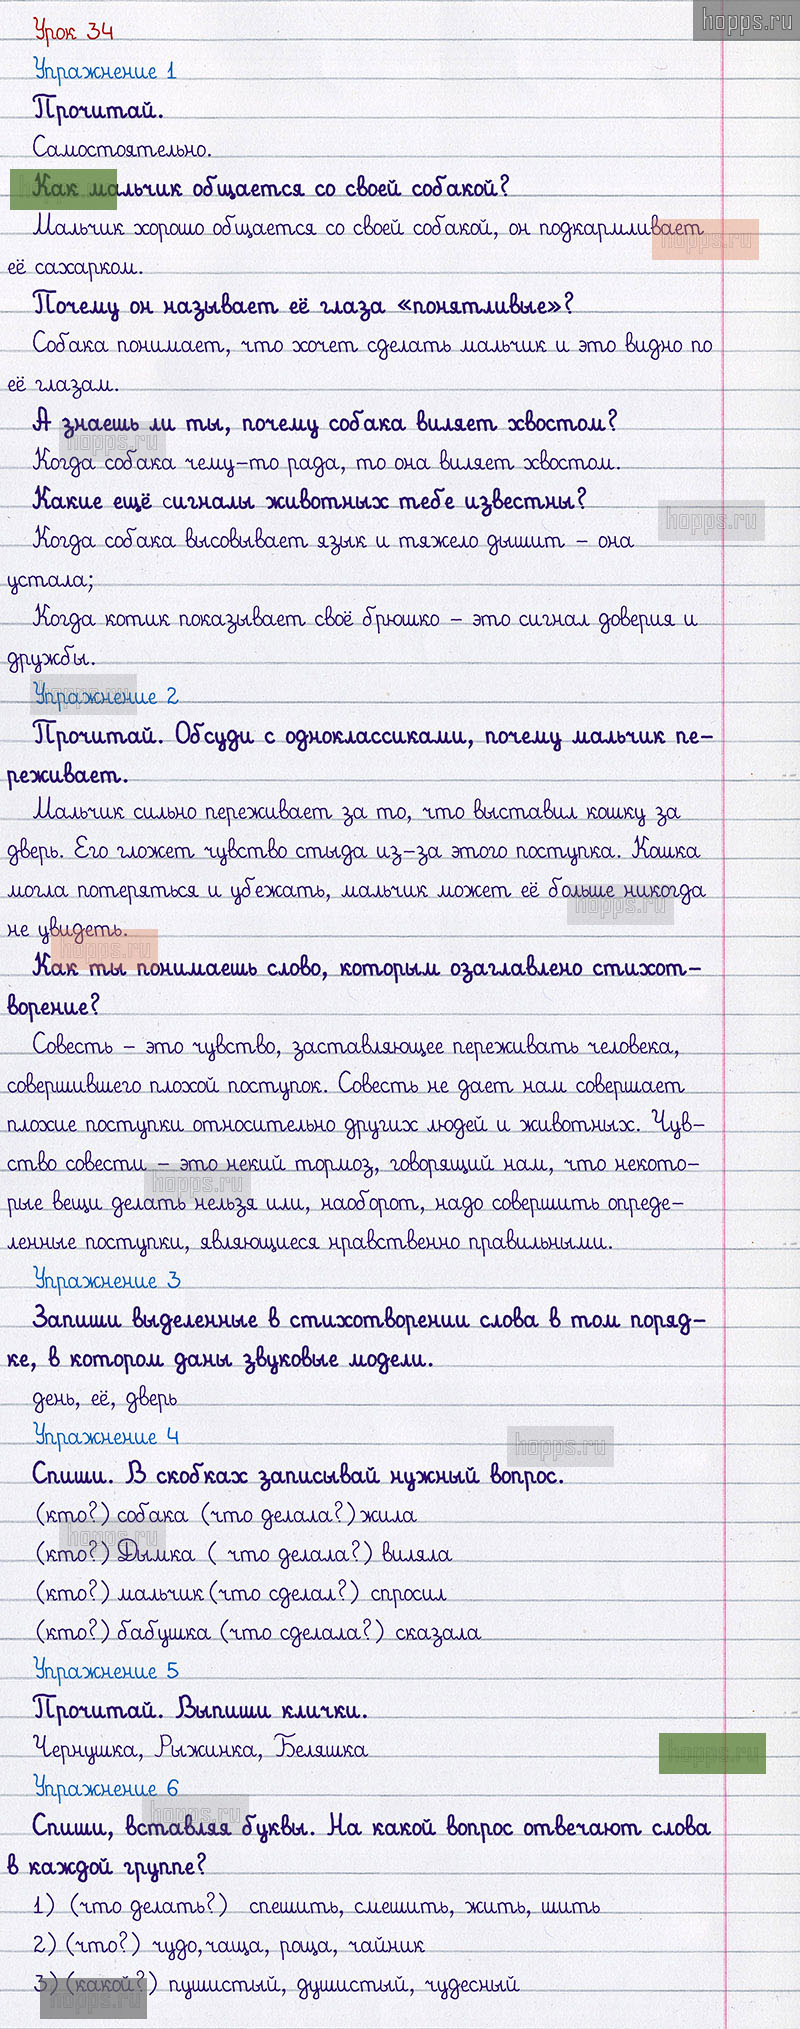 hopps.ru
Урок 34
Упражнение 1
Прочитай.
Самостоятельно.
Как мальчик общается со своей собакой?
Мальчик хорошо общается со своей собакой, он подкармливает
hopps.ru
её сахарком.
Почему он называет её глаза «понятливые»?
Собака понимает, что хочет сделать мальчик и это видно по
её глазам.
А знаешь ли ты, почему собака виляет хвостом?
hopps.ru
Когда собака чему-то рада, то она виляет хвостом.
Какие ещё сигналы животных тебе известны?
hopps.ru
Когда собака высовывает язык и тяжело дышит – она
устала;
Когда котик показывает своё брюшко – это сигнал доверия и
дружбы.
Упражнение 2
Прочитай. Обсуди с одноклассиками, почему мальчик пе-
реживает.
Мальчик сильно переживает за то, что выставил кошку за
дверь. Его гложет чувство стыда из-за этого поступка. Кошка
могла потеряться и убежать, мальчик может её больше никогда
hopps.ru
не увидеть.
hopps.ru
Как ты понимаешь слово, которым озаглавлено стихот-
ворение?
Совесть – это чувство, заставляющее переживать человека,
совершившего плохой поступок. Совесть не дает нам совершает
плохие поступки относительно других людей и животных. Чув-
ство совести – это некий тормоз, говорящий нам, что некото-
hopps.ru
рые вещи делать нельзя или, наоборот, надо совершить опреде-
ленные поступки, являющиеся нравственно правильными.
Упражнение 3
Запиши выделенные в стихотворении слова в том поряд-
ке, в котором даны звуковые модели.
день, её, дверь
Упражнение 4
hopps.ru
Спиши. В скобках записывай нужный вопрос.
(кто?) собака (что делала?) жила
hopps.ru
(кто?) Дымка ( что делала?) виляла
(кто?) мальчик (что сделал?) спросил
(кто?) бабушка (что сделала?) сказала
Упражнение 5
Прочитай. Выпиши клички.
Чернушка, Рыжинка, Беляшка
hopps.ru
Упражнение 6
hopps.ru
Спиши, вставляя буквы. На какой вопрос отвечают слова
в каждой группе?
1) (что делать?) спешить, смешить, жить, шить
2) (что?) чудо,чаща, роща, чайник
3) (какой?) пушистый, душистый, чудесный
hopps.ru